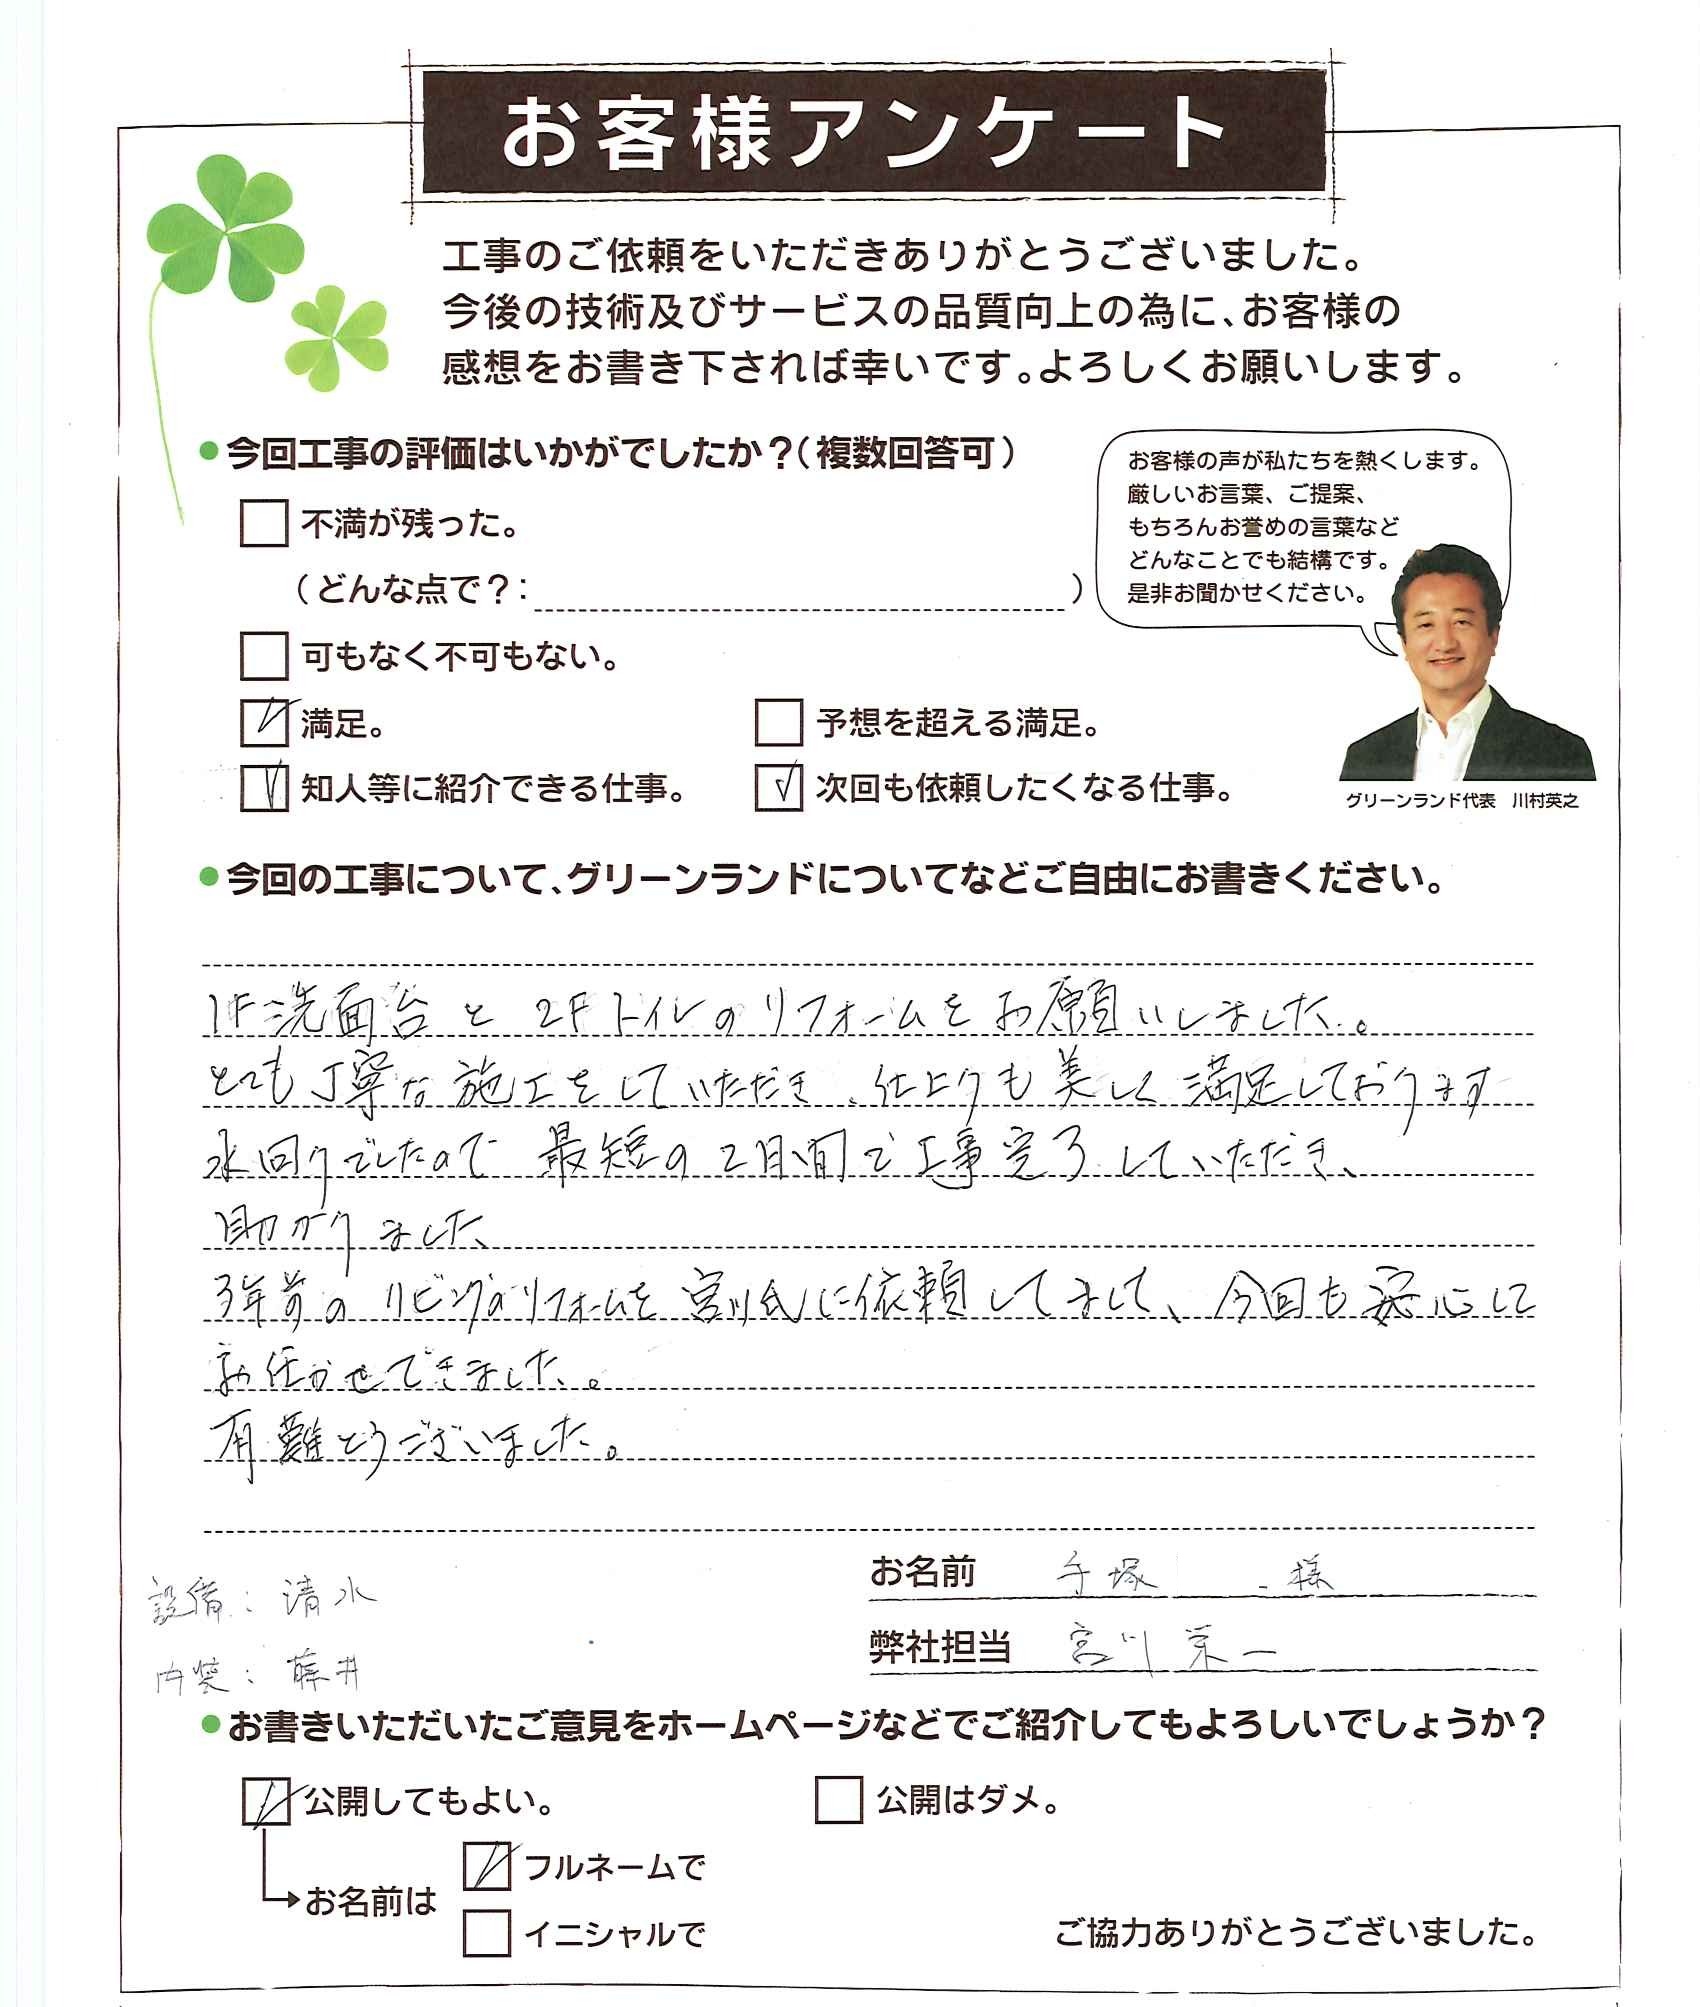 お客様アンケート
工事のご依頼をいただきありがとうございました。
今後の技術及びサービスの品質向上の為に、お客様の
感想をお書き下されば幸いです。よろしくお願いします。
●今回工事の評価はいかがでしたか？（複数回答可）
不満が残った。
（どんな点で？：　）
可もなく不可もない。
満足。
予想を超える満足。
知人等に紹介できる仕事。
次回も依頼したくなる仕事。
お客様の声が私たちを熱くします。
厳しいお言葉、ご提案、
もちろんお誉めの言葉など
どんなことでも結構です。
是非お聞かせください。
グリーンランド代表　川村英之
●今回の工事について、グリーンランドについてなどご自由にお書きください。
1F洗面台と 2Fトイレのリフォームをお願いしました。
とても丁寧な施工をしていただき、仕上りも美しく満足しております
水回りでしたので 最短の2日間で工事完了していただき、
助かりました
3年前のリビングのリフォームを宮川氏に依頼してまして、今回も安心して
お任かせできました。
有難とうございました。
設備：清水
内装：藤井
お名前　手塚　様
弊社担当　宮川 栄一
●お書きいただいたご意見をホームページなどでご紹介してもよろしいでしょうか？
公開してもよい。
公開はダメ。
お名前は
フルネームで
イニシャルで
ご協力ありがとうございました。